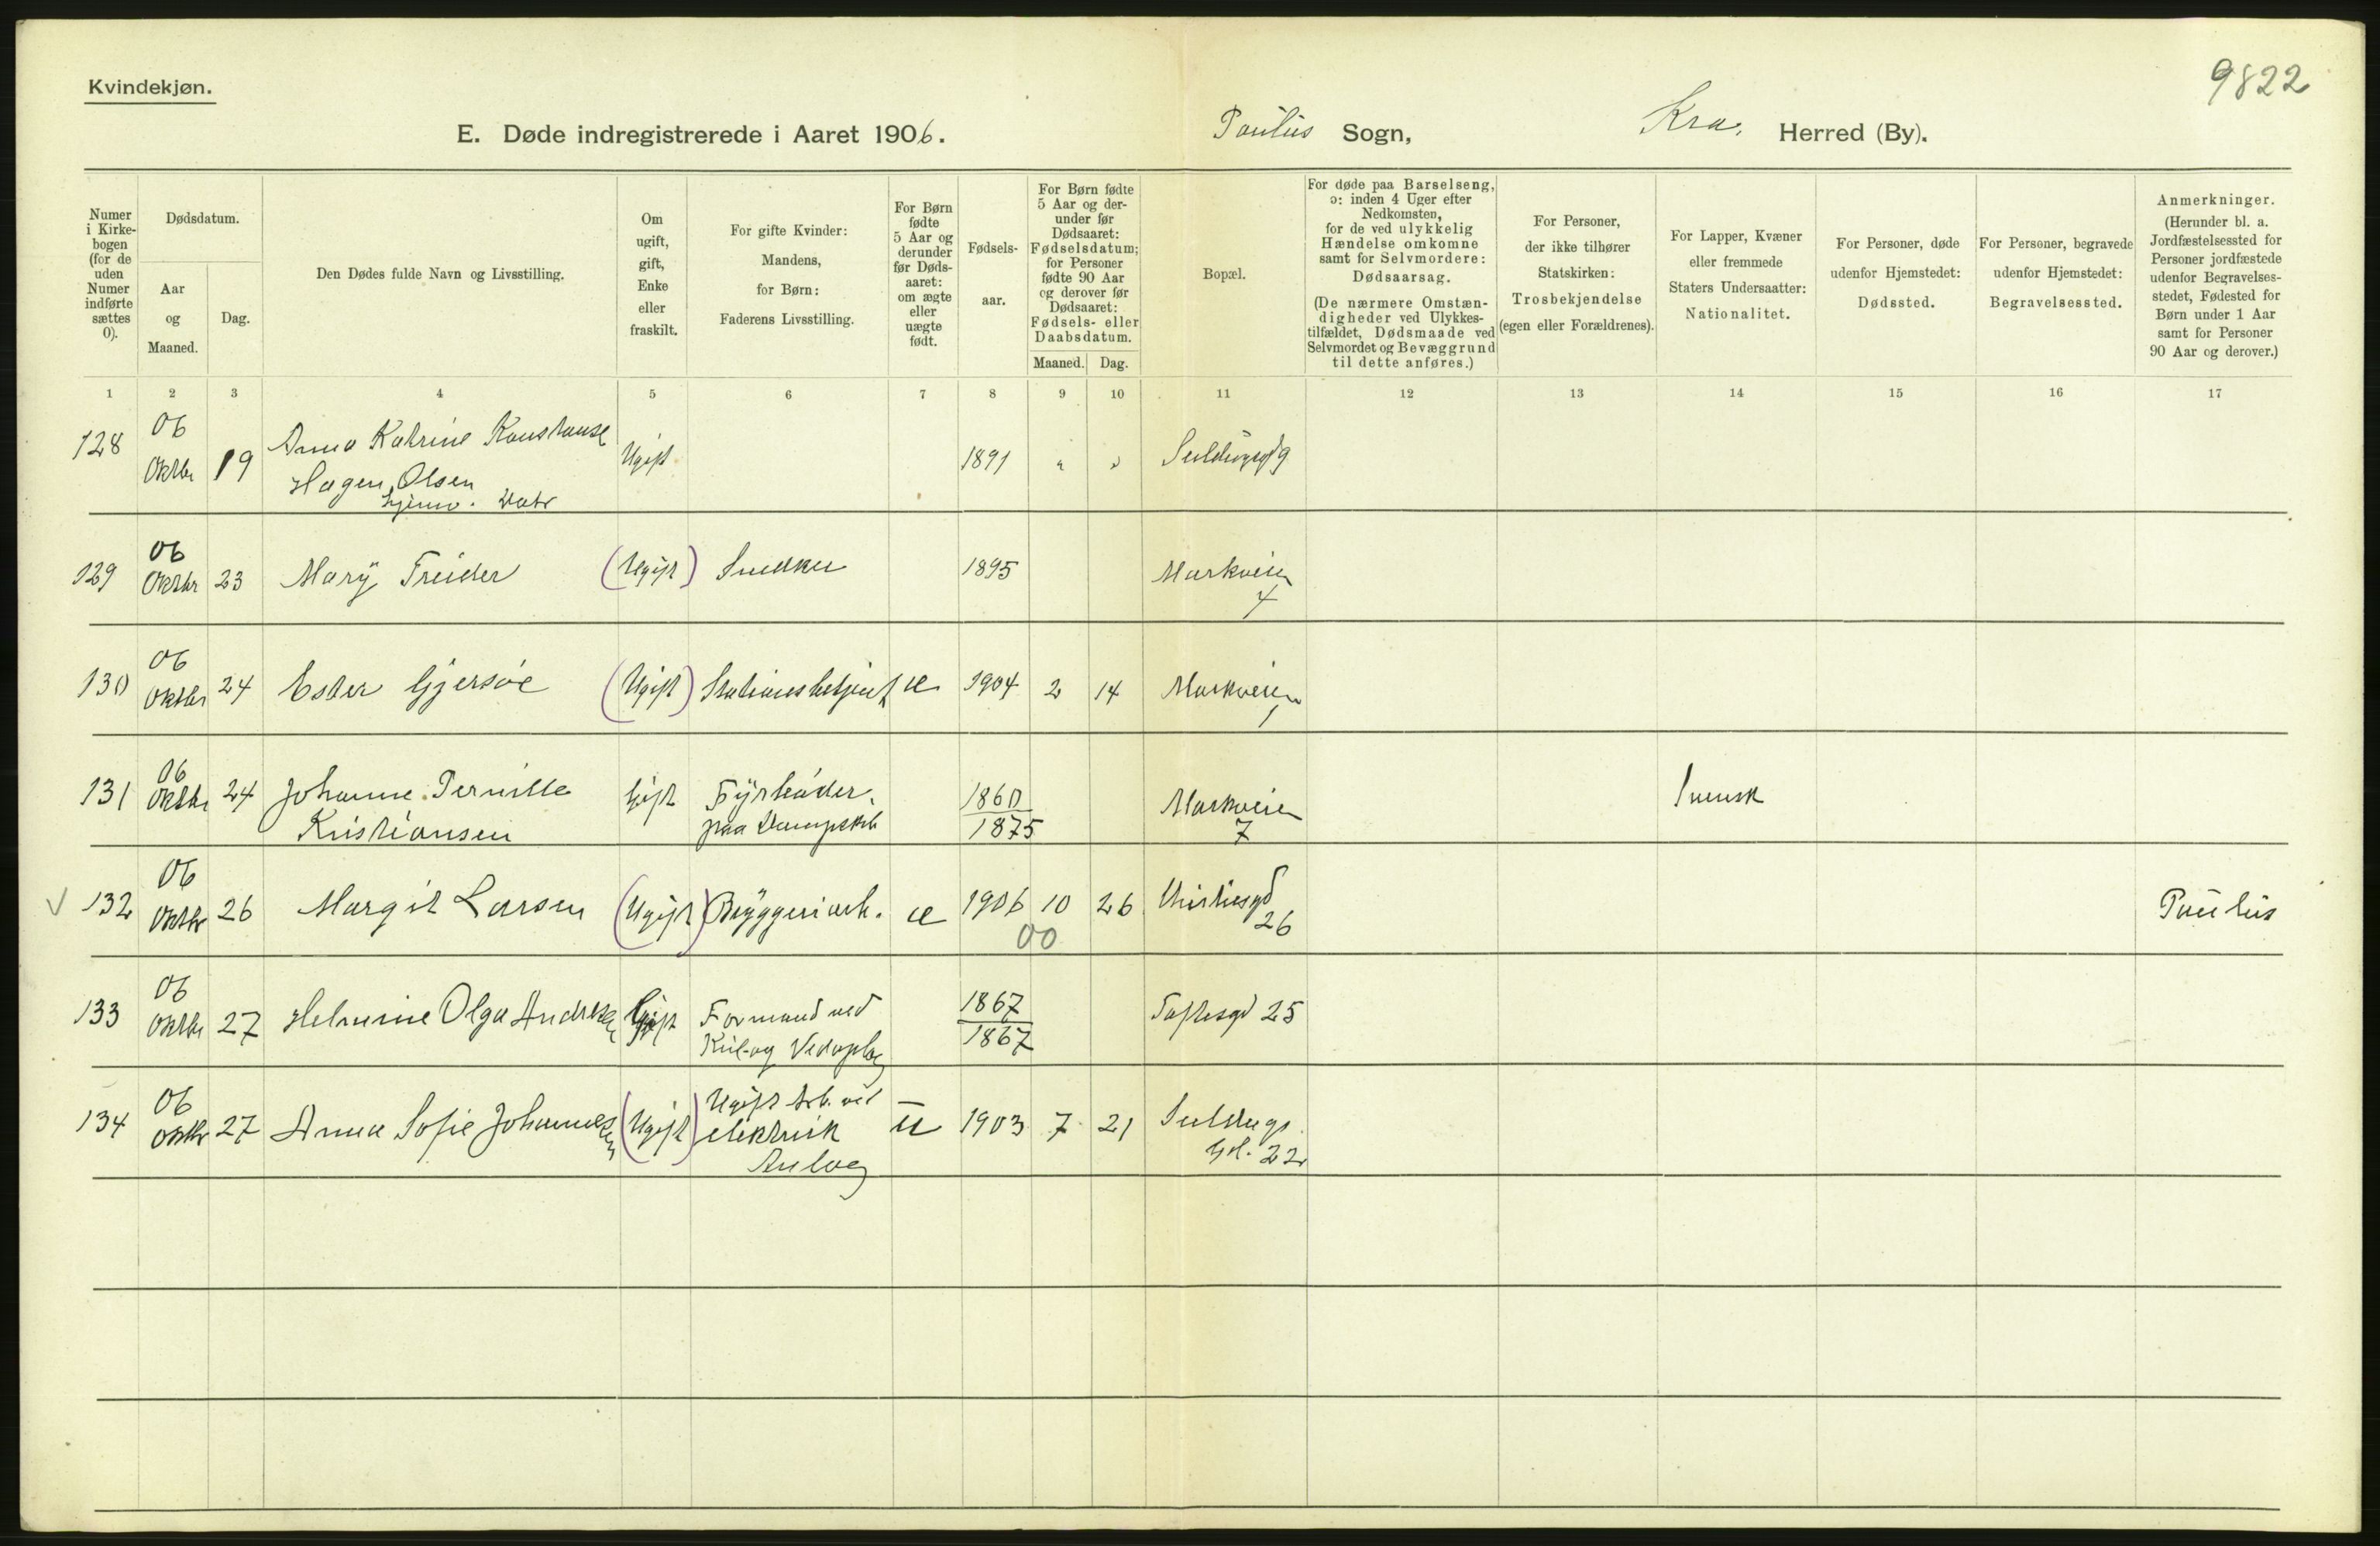 Kvindekjøn.
9822
E. Døde indregistrerede i Aaret 1906.
Paulus Sogn,
Kra. Herred (By).
Numer i Kirkebogen (for de uden Numer indførte sættes 0).
Dødsdatum.
Aar og Maaned.
Dag.
Den Dødes fulde Navn og Livsstilling.
Om ugift, gift, Enke eller fraskilt.
For gifte Kvinder: Mandens, for Børn: Faderens Livsstilling.
For Børn fødte 5 Aar og derunder før Dødsaaret: om ægte eller uægte født.
Fødselsaar.
For Børn fødte 5 Aar og derunder før Dødsaaret: Fødselsdatum; for Personer fødte 90 Aar og derover før Dødsaaret: Fødsels- eller Daabsdatum.
Maaned. Dag.
Bopæl.
For døde paa Barselseng, ɔ: inden 4 Uger efter Nedkomsten, for de ved ulykkelig Hændelse omkomne samt for Selvmordere: Dødsaarsag.
(De nærmere Omstændigheder ved Ulykkestilfældet, Dødsmaade ved Selvmordet og Bevæggrund til dette anføres.)
For Personer, der ikke tilhører Statskirken: Trosbekjendelse (egen eller Forældrenes).
For Lapper, Kvæner eller fremmede Staters Undersaatter: Nationalitet.
For Personer, døde udenfor Hjemstedet: Dødssted.
For Personer, begravede udenfor Hjemstedet: Begravelsessted.
Anmerkninger.
(Herunder bl. a. Jordfæstelsessted for Personer jordfæstede udenfor Begravelsesstedet, Fødested for Børn under 1 Aar samt for Personer 90 Aar og derover.)
1 2 3 4 5 6 7 8 9 10 11 12 13 14 15 16 17
128 06 Oktbr 19 Anna Katrine Konstanse Hagen Olsen hjemv. Datr Ugift 1891 " "
129 06 Oktbr 23 Mary (Ugift) Snedker 1895 Markveien 4
130 06 Oktbr 24 Ester Gjersøe (Ugift) Stationsbetjent æ 1904 2 14 Markveien 1
131 06 Oktbr 24 Johanne Pernille Kristiansen Gift Fyrbøder paa Dampskib 1860 1875 Markveien 7 Svensk
V 132 06 Oktbr 26 Margit Larsen (Ugift) Bryggeriarb. æ 1906 10 26 00 26 Paulus
133 06 Oktbr 27 Helmine Olga Andresen Gift Formand ved Kul- og Vedoplag 1867 1867 Toftesgd 25
134 06 Oktbr 27 Anna Sofie Johannesen (Ugift) Ugift Arb. ved elektrisk Anlæg ū 1903 7 21 Gd. 22